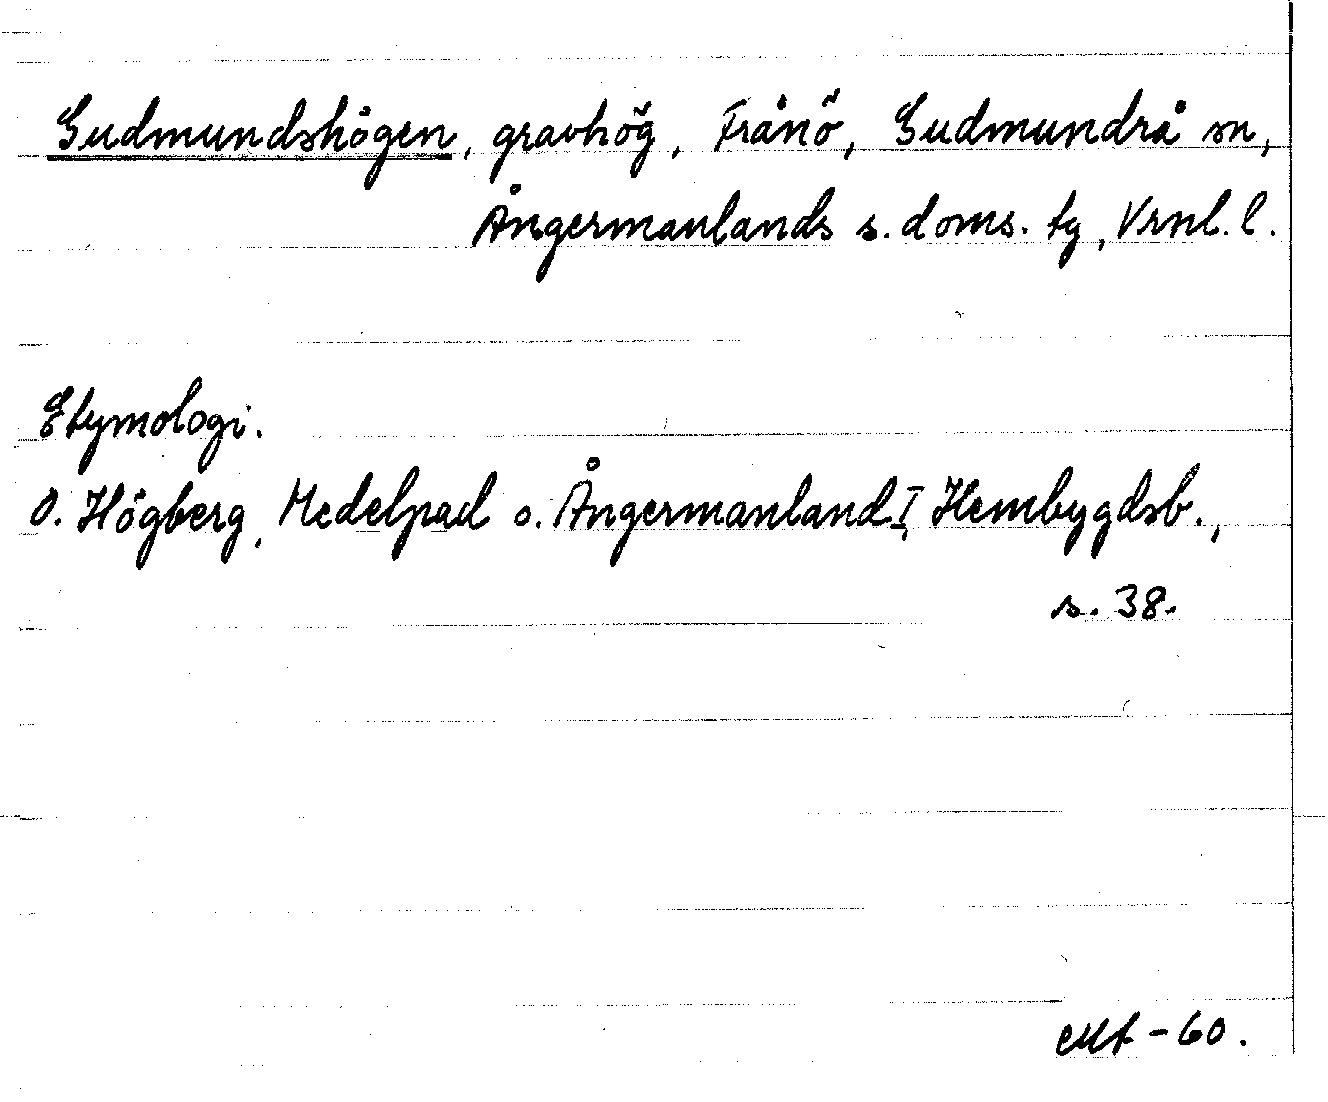 Gudmundshögen, gravhög, Frånö, Gudmundrå sn,
Ångermanlands s. doms. tg, Vrnl. l.
Etymologi.
O. Högberg, Medelpad o. Ångermanland I, Hembygdsb.,
s. 38.
-60.